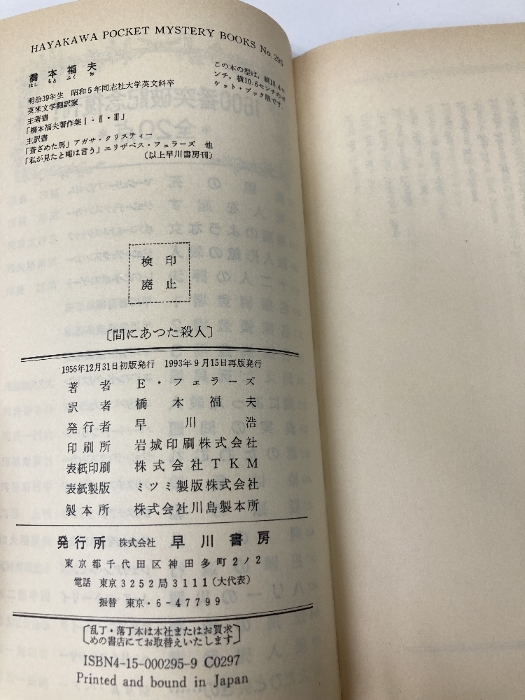 HAYAKAWA POCKET MYSTERY BOOKS No. 295
橋本福夫
はし もと ふく お
明治39年生 昭和5年同志社大学英文科卒
英米文学翻訳家
主著書
「橋本福夫著作集Ⅰ・Ⅱ・Ⅲ」
主訳書
「蒼ざめた馬」アガサ・クリスティー
「私が見たと蠅は言う」エリザベス・フェラーズ 他
(以上早川書房刊)
この本の型は、縦18.4セ
ンチ、横10.6センチのポ
ケット・ブック判です
検印
廃止
〔間にあつた殺人〕
1956年12月31日初版発行 1993年9月15日再版発行
著者 E・フェラーズ
訳者 橋本福夫
発行者 早川浩
印刷所 岩城印刷株式会社
表紙印刷 株式会社TKM
表紙製版 ミツミ製版株式会社
製本所 株式会社川島製本所
発行所 株式会社 早川書房
東京都千代田区神田多町2ノ2
電話 東京3252局3111(大代表)
振替 東京・6-47799
〔乱丁・落丁本は本社またはお買求
めの書店にてお取替えいたします〕
ISBN4-15-000295-9 C0297
Printed and bound in Japan